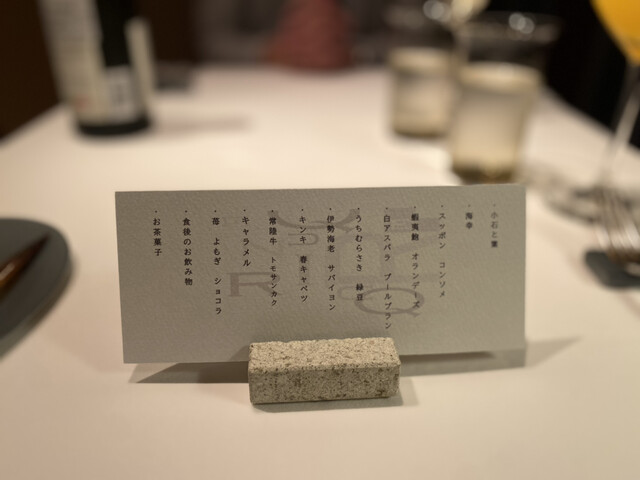 ・小石と藁
・海幸
・スッポン　コンソメ
・蝦夷鮑　オランデーズ
・白アスパラ　ブールブラン
・うちむらさき　緑豆
・伊勢海老　サバイヨン
・キンキ　春キャベツ
・常陸牛　トモサンカク
・キャラメル
・苺　よもぎ　ショコラ
・食後のお飲み物
・お茶菓子